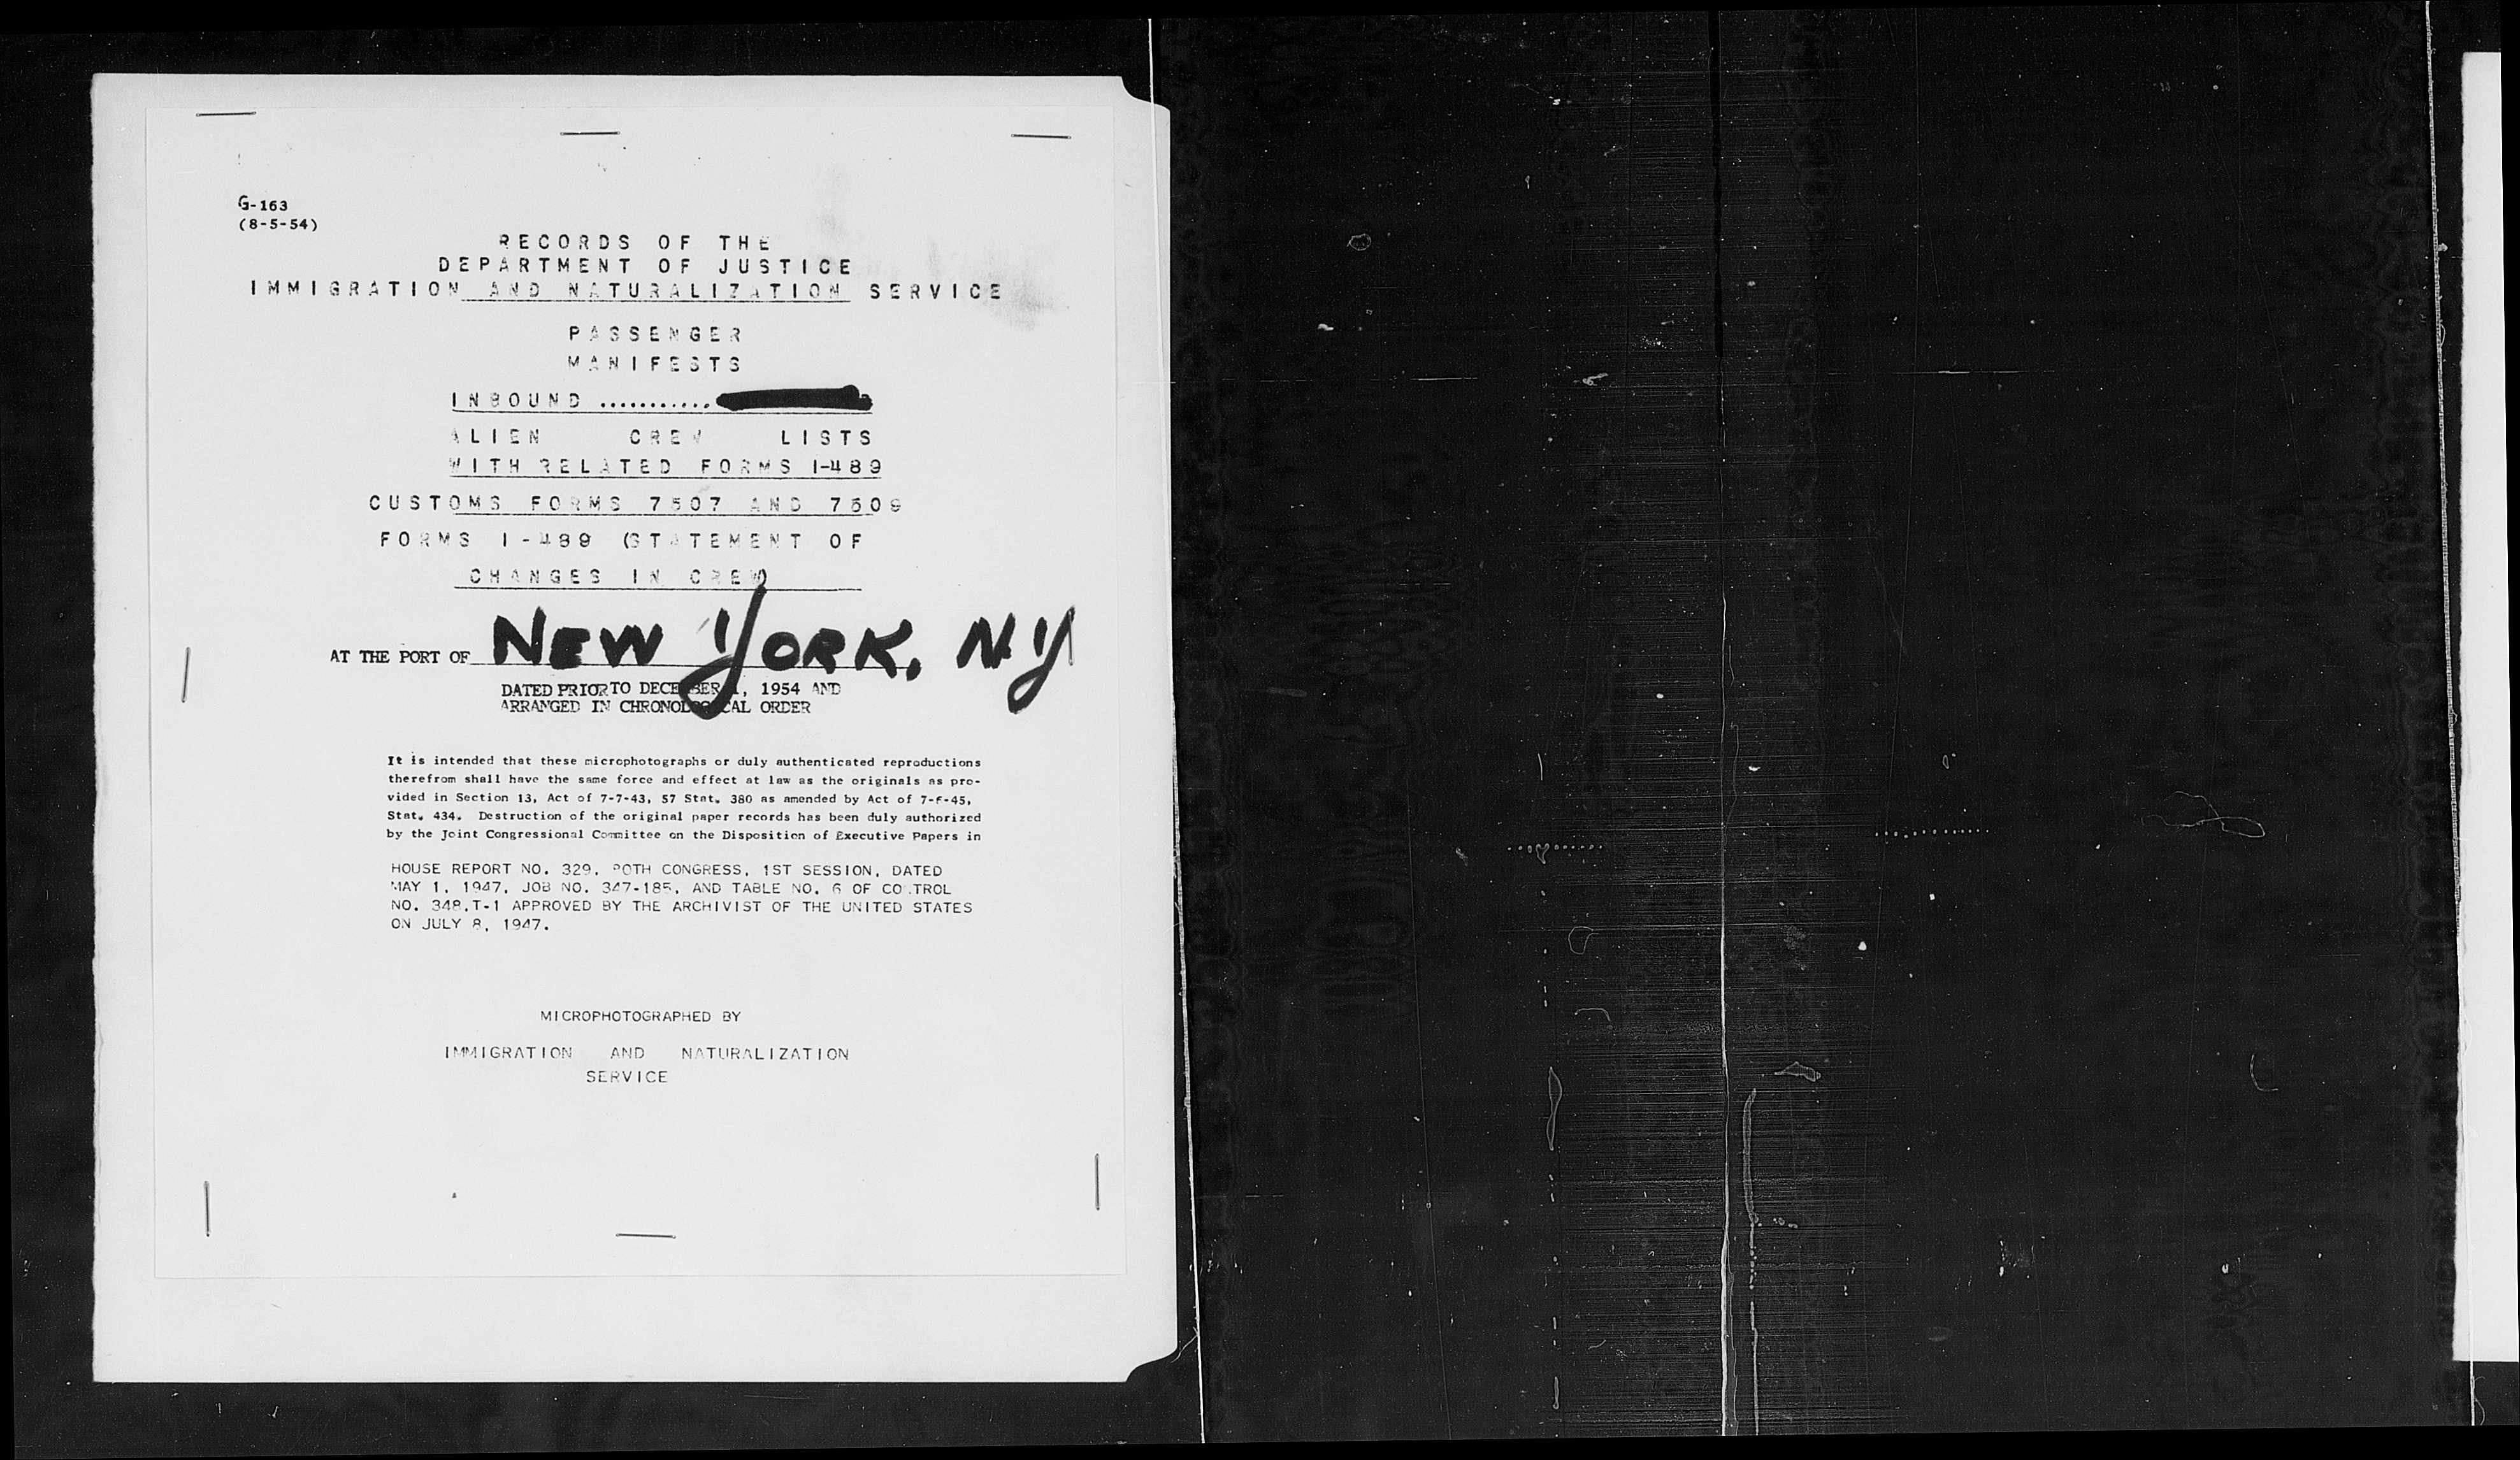 G-163
(8-5-54)
RECORDS OF THE
DEPARTMENT OF JUSTICE
IMMIGRATION AND NATURALIZATION SERVICE
PASSENGER
MANIFESTS
INBOUND ...........
ALIEN CREW LISTS
WITH RELATED FORMS I-489
CUSTOMS FORMS 7507 AND 7509
FORMS I-489 (STATEMENT OF
CHANGES IN CREW)
AT THE PORT OF NEW YORK, NY
DATED PRIOR TO DECEMBER 1, 1954 AND
ARRANGED IN CHRONOLOGICAL ORDER
It is intended that these microphotographs or duly authenticated reproductions
therefrom shall have the same force and effect at law as the originals as pro-
vided in Section 13, Act of 7-7-43, 57 Stat. 380 as amended by Act of
Stat. 434. Destruction of the original paper records has been duly authorized
by the Joint Congressional Committee on the Disposition of Executive Papers in
HOUSE REPORT NO. 329, 80TH CONGRESS, 1ST SESSION, DATED
MAY 1, 1947, JOB NO. 347-185, AND TABLE NO. 6 OF CONTROL
NO. 348.T-1 APPROVED BY THE ARCHIVIST OF THE UNITED STATES
ON JULY 8, 1947.
MICROPHOTOGRAPHED BY
IMMIGRATION AND NATURALIZATION
SERVICE